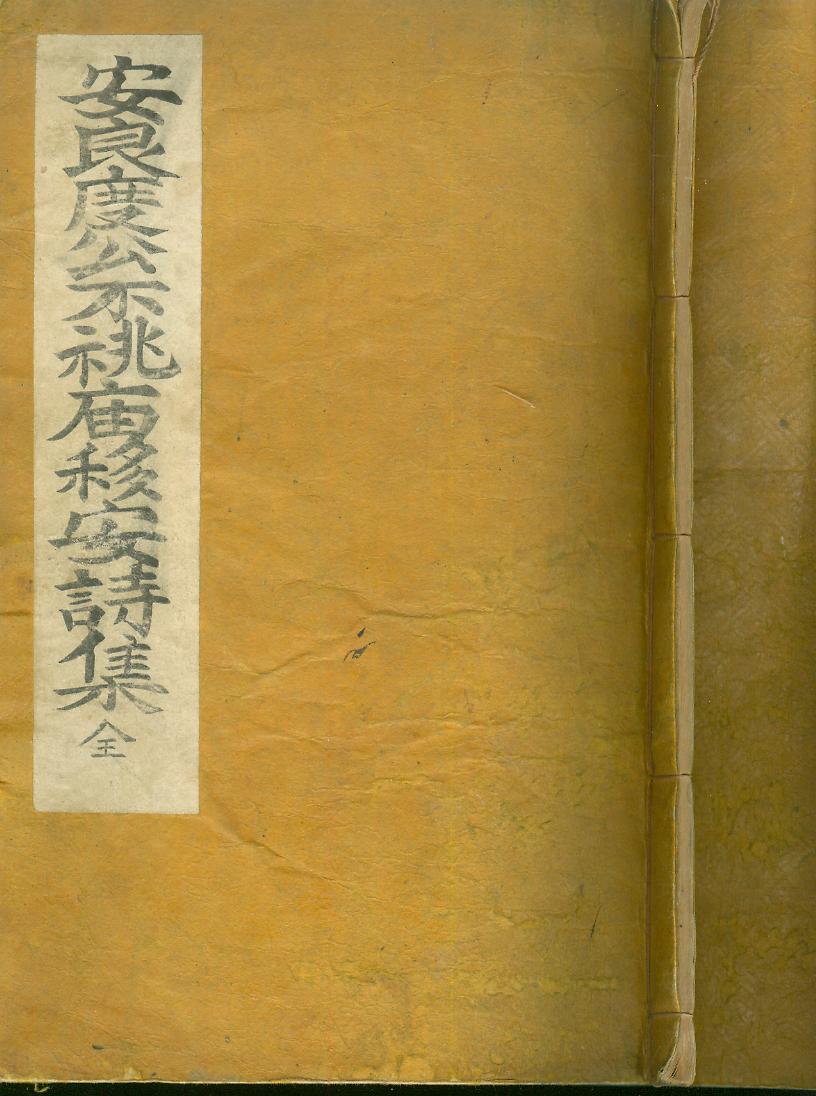 安良度公不祧庙移安詩集 全